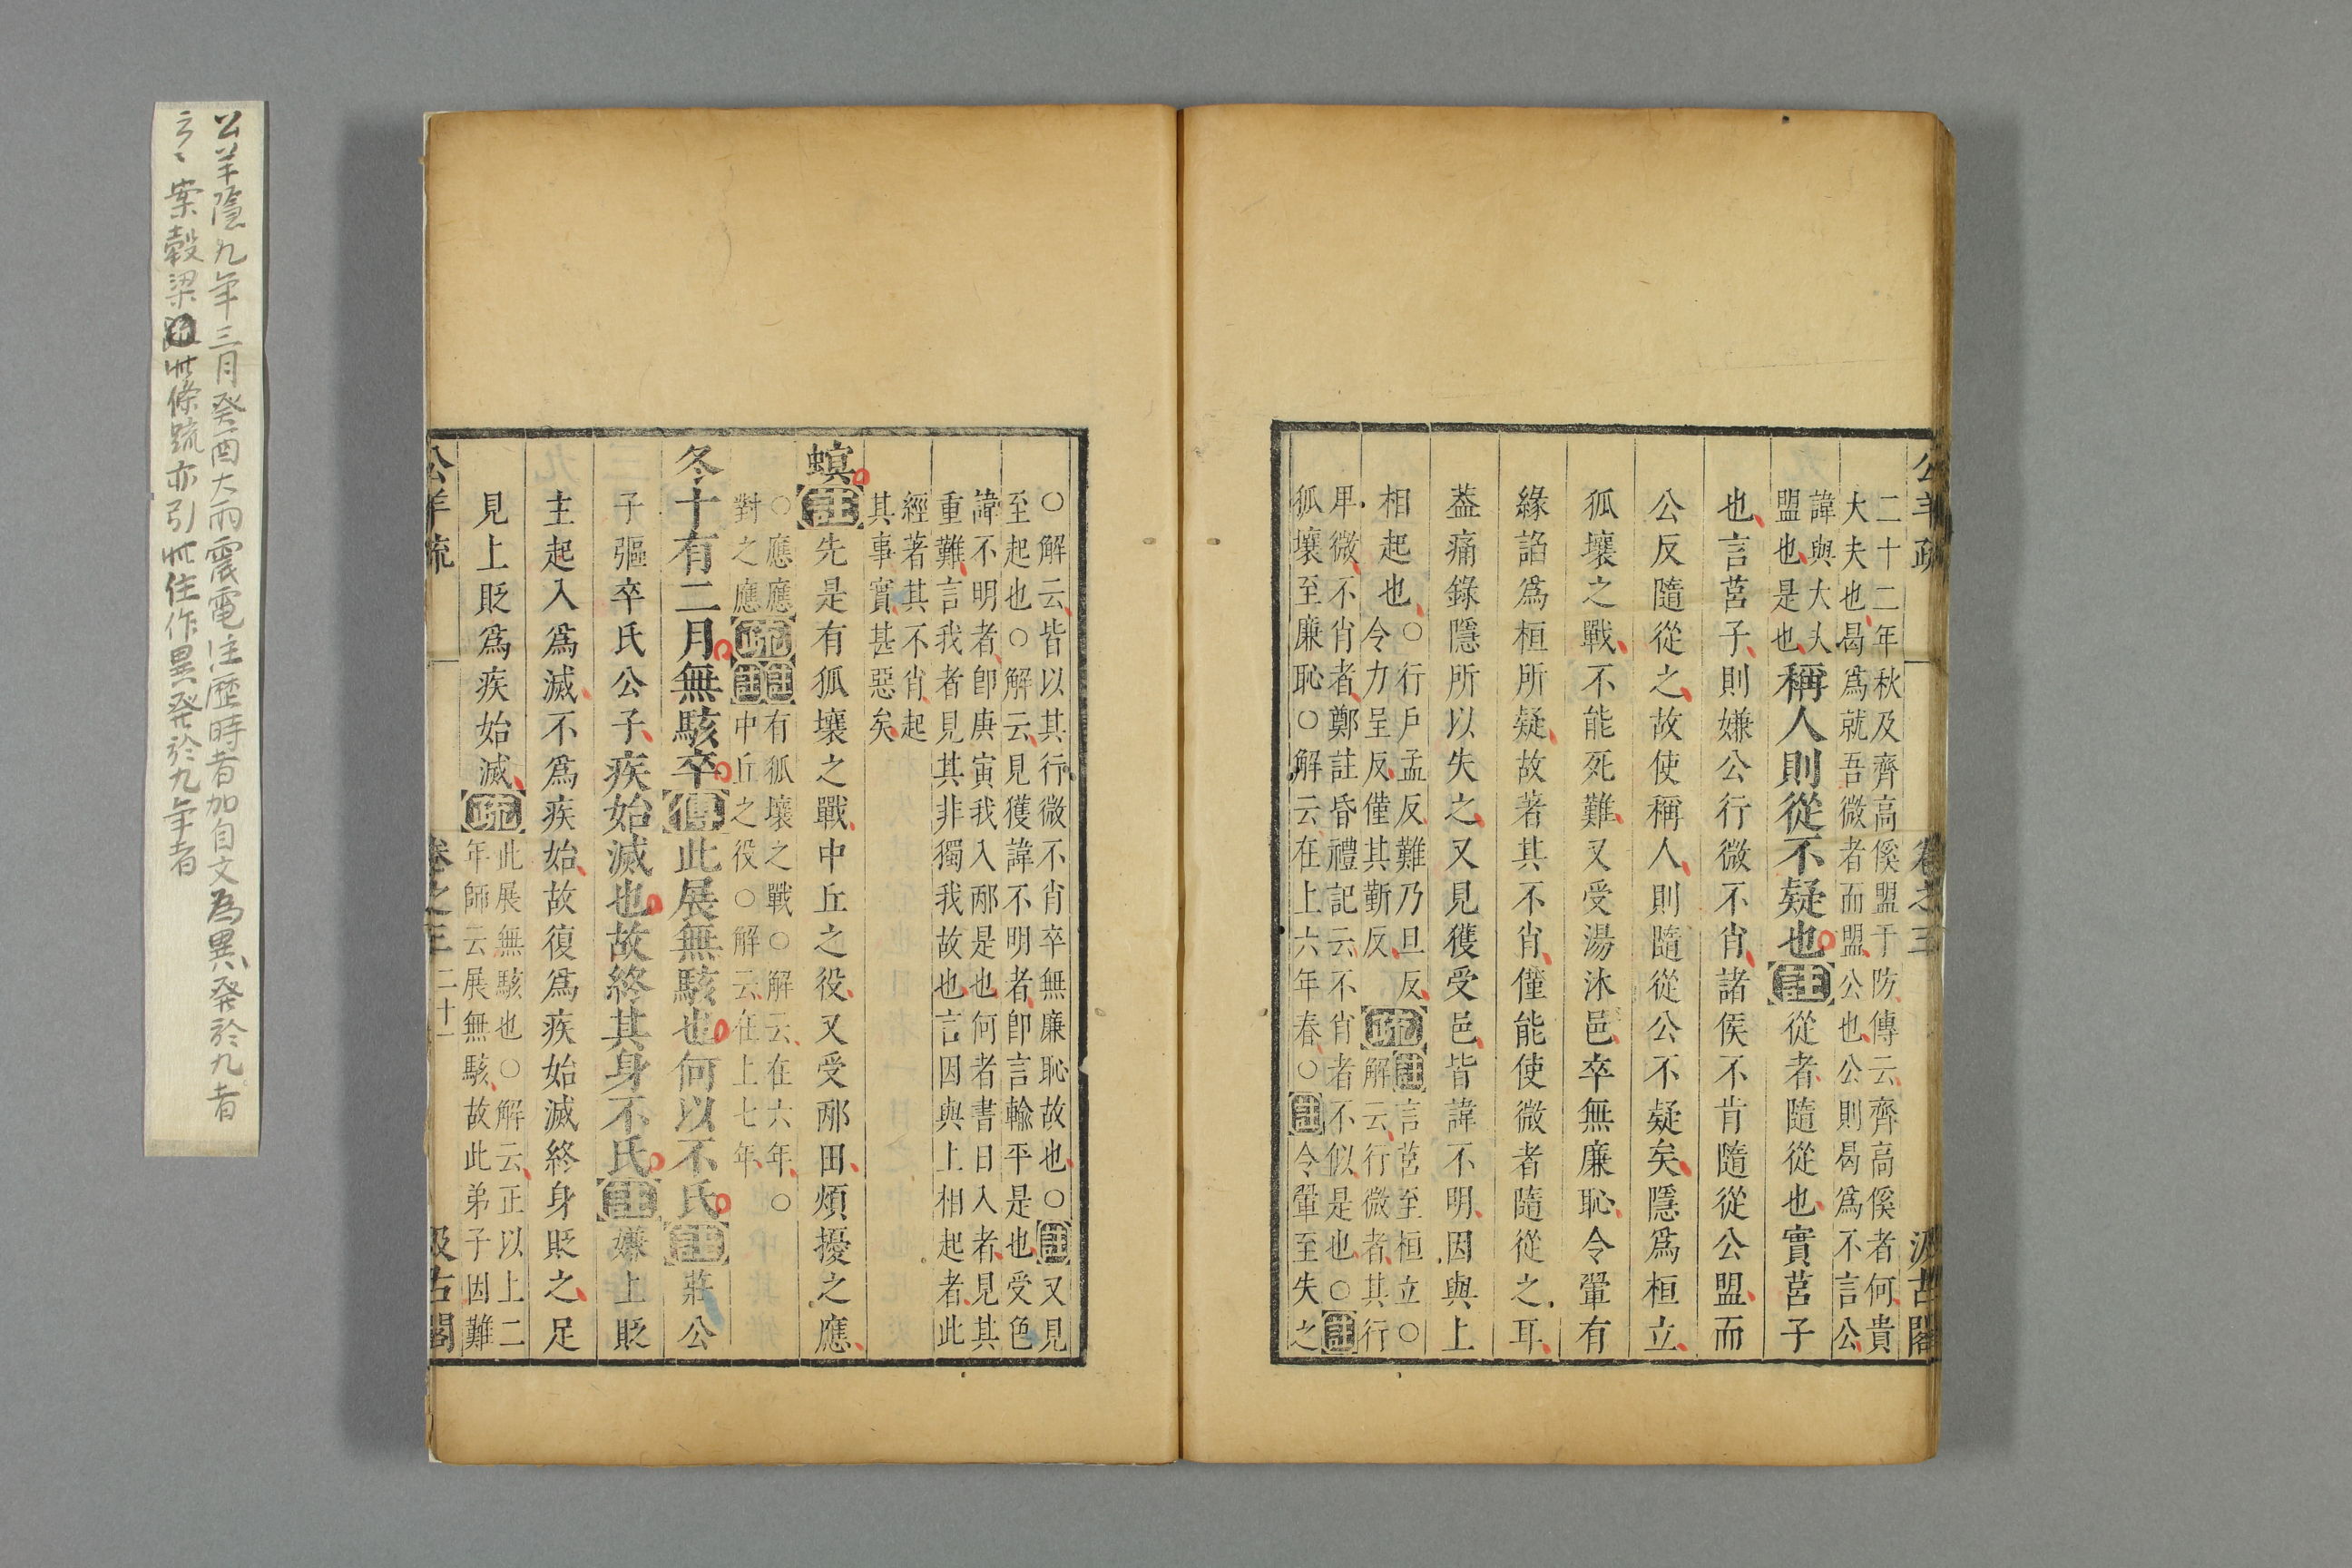 公羊疏 卷之三 汲古閣
二十二年秋及齊高傒盟于防傳云齊高傒者何貴
大夫也曷爲就吾微者而盟公也公則曷爲不言公
諱與大夫
盟也是也
稱人則從不疑也註從者隨從也實莒子
也言莒子則嫌公行微不肖諸侯不肯隨從公盟而
公反隨從之故使稱人則隨從公不疑矣隱爲桓立
狐壤之戰不能死難又受湯沐邑卒無廉恥令翬有
緣諂爲桓所疑故著其不肖僅能使微者隨從之耳
葢痛錄隱所以失之又見獲受邑皆諱不明因與上
相起也
○行戸孟反難乃旦反
令力呈反僅其靳反
疏
註言莒至桓立○
解云行微者其行
卑微不肖者鄭註昏禮記云不肖者不似是也○註
狐壤至廉恥○解云在上六年春○註令翬至失之
○解云皆以其行微不肖卒無廉恥故也○註又見
至起也○解云見獲諱不明者卽言輸平是也受色
諱不明者卽庚寅我入邴是也何者書日入者見其
重難言我者見其非獨我故也言因與上相起者此
經著其不肖起
其事實甚惡矣
螟註先是有狐壤之戰中丘之役又受邴田煩擾之應
○應應
對之應
疏
註有狐壤之戰○解云在六年○
註中丘之役○解云在上七年
冬十有二月無駭卒傳此展無駭也何以不氏註莊公
子彄卒氏公子疾始滅也故終其身不氏註嫌上貶
主起入爲滅不爲疾始故復爲疾始滅終身貶之足
見上貶爲疾始滅疏
此展無駭也○解云正以上二
年師云展無駭故此弟子因難
公羊疏 卷之三 二十一 汲古閣
公羊隱九年三月癸酉大雨震電注歷時者加自文為異發於九者
云〻案穀梁此條疏亦引此注作異発於九年者